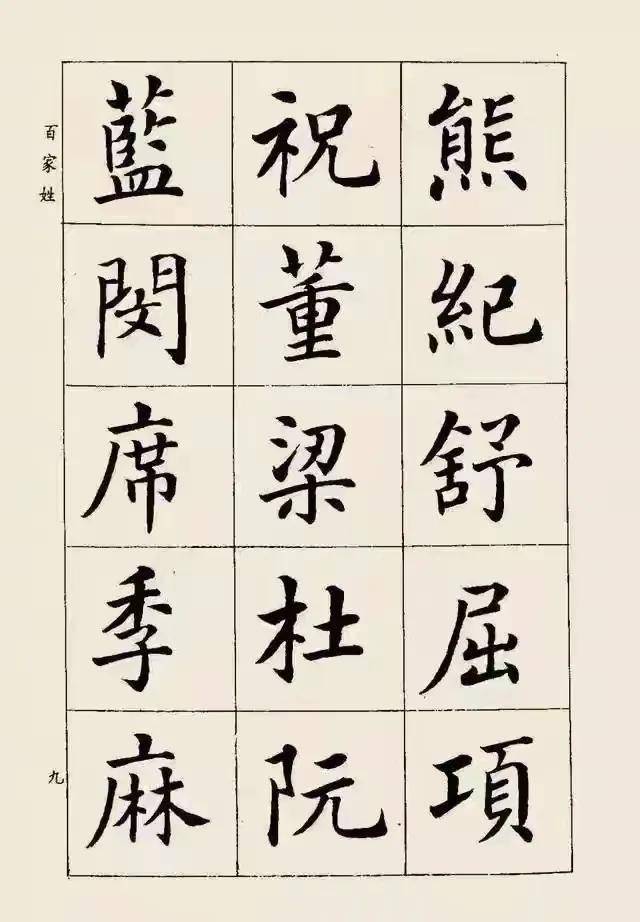 熊紀舒屈項
祝董梁杜阮
藍閔席季麻
百家姓
九